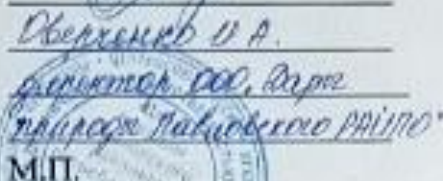 Оверченко И А.
директор ООО „Дары
природы" Павловского РАЙПО"
М.П.